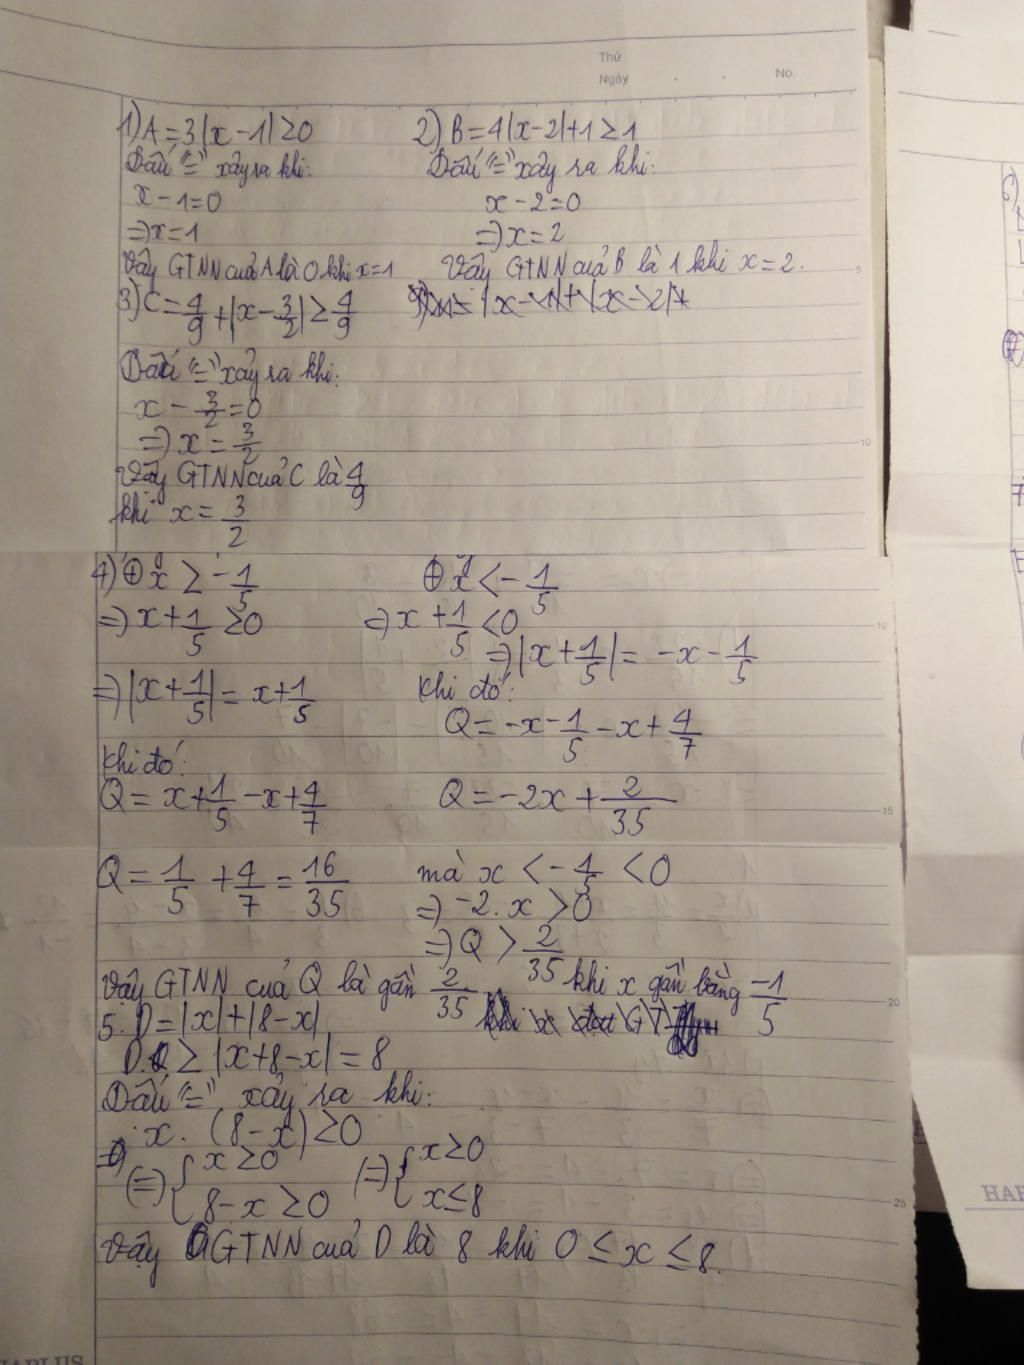 Thứ
Ngày . . No.
1) A = 3|x - 1| ≥ 0
Dấu "=" xảy ra khi:
x - 1 = 0
=> x = 1
Vậy GTNN của A là 0 khi x = 1
2) B = 4|x - 2| + 1 ≥ 1
Dấu "=" xảy ra khi:
x - 2 = 0
=> x = 2
Vậy GTNN của B là 1 khi x = 2.
3) C = 4/9 + |x - 3/2| ≥ 4/9
Dấu "=" xảy ra khi:
x - 3/2 = 0
=> x = 3/2
Vậy GTNN của C là 4/9
khi x = 3/2
4) ⊕ x ≥ -1/5
=> x + 1/5 ≥ 0
=> |x + 1/5| = x + 1/5
Khi đó:
Q = x + 1/5 - x + 4/7
Q = 1/5 + 4/7 = 16/35
⊕ x < - 1/5
=> x + 1/5 < 0
=> |x + 1/5| = -x - 1/5
Khi đó:
Q = -x - 1/5 - x + 4/7
Q = -2x + 2/35
mà x < - 1/5 < 0
=> -2. x > 0
=> Q > 2/35
Vậy GTNN của Q là gần 2/35 khi x gần bằng -1/5
5. D = |x| + |8 - x|
D ≥ |x + 8 - x| = 8
Dấu "=" xảy ra khi:
x. (8 - x) ≥ 0
(=) { x ≥ 0 (=) { x ≥ 0
8 - x ≥ 0 x ≤ 8
Vậy GTNN của D là 8 khi 0 ≤ x ≤ 8.
5
10
10
15
20
25
6)